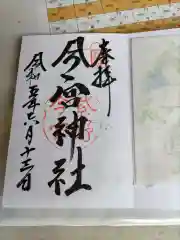 奉拝
今宮神社
令和五年六月十三日